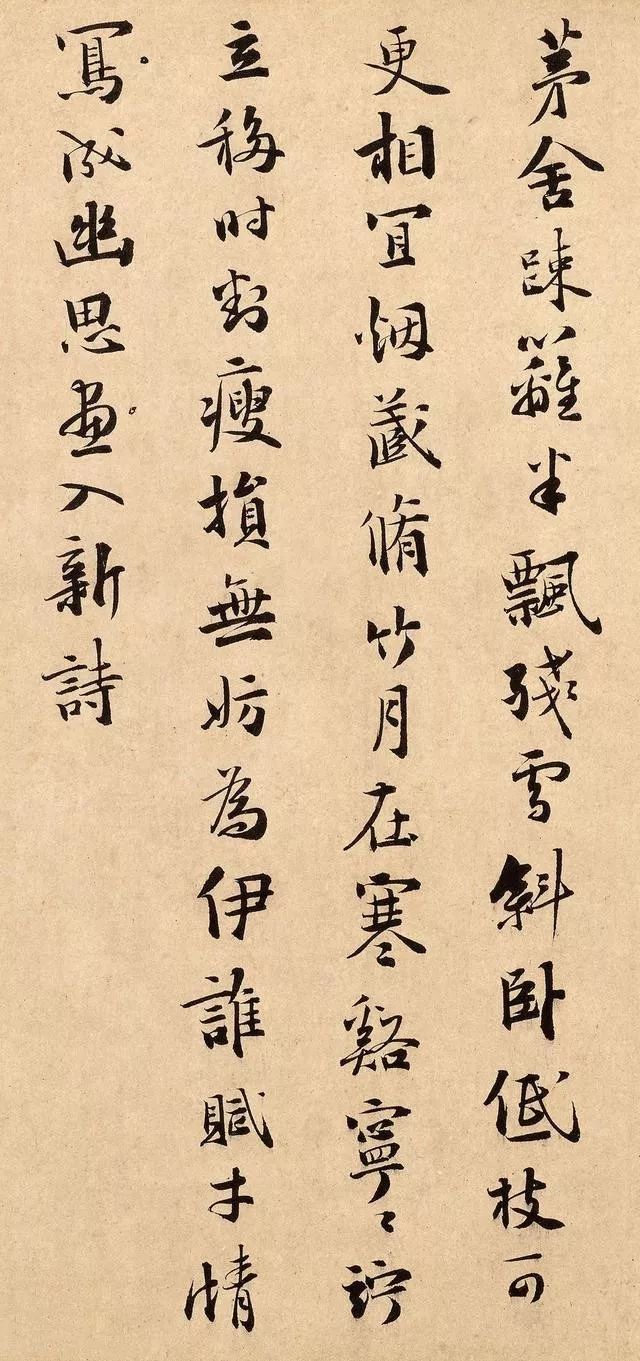 茅舍踈籬半飄殘雪斜臥低枝可
更相冝烟蔵脩竹月在寒谿寧〻竚
立移時判瘦損無妨為伊誰賦才情
寫成幽思畫入新詩